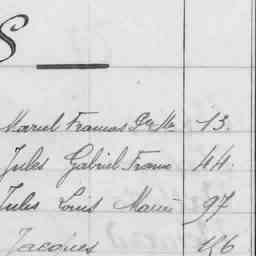 S
Marcel Francois 13.
Jules Gabriel Franc 44.
Jules Louis Marie 97
Jacques 126